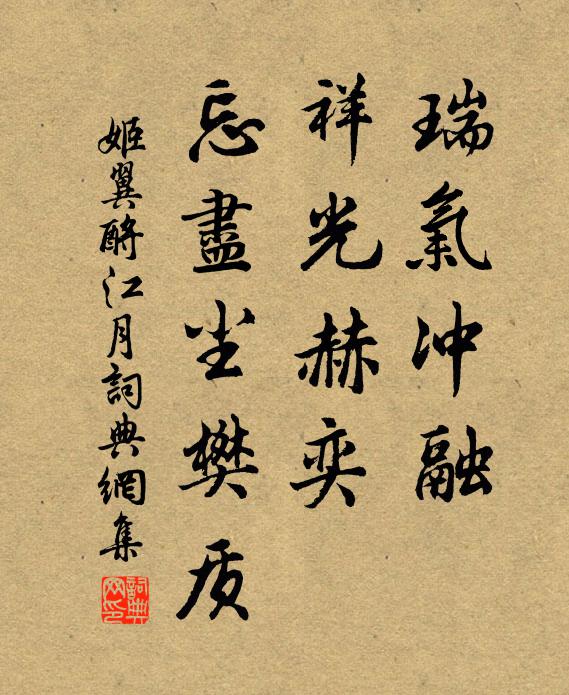 瑞氣冲融
祥光赫奕
忘盡尘樊质
姬翼酹江月詞典網集
詞典网印